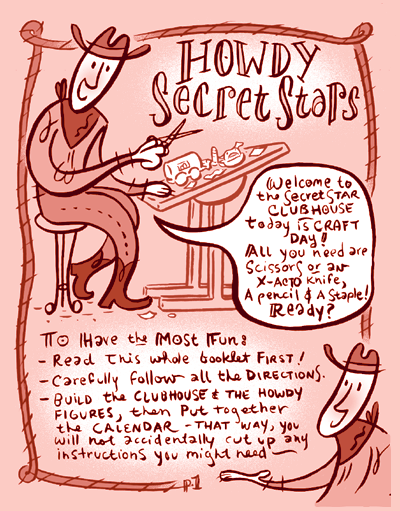 HOWDY
Secret Stars
Welcome to
the Secret STAR
CLUBHOUSE
today is CRAFT
DAY!
All you need are
Scissors or an
X-ACTO Knife,
A pencil & A Staple!
Ready?
TO Have the Most Fun:
- Read This whole booklet FIRST!
- Carefully follow all the DIRECTIONS.
- BUILD the CLUBHOUSE & THE HOWDY
FIGURES, then Put together
the CALENDAR - THAT WAY, you
will not accidentally cut up any
instructions you might need —
p1